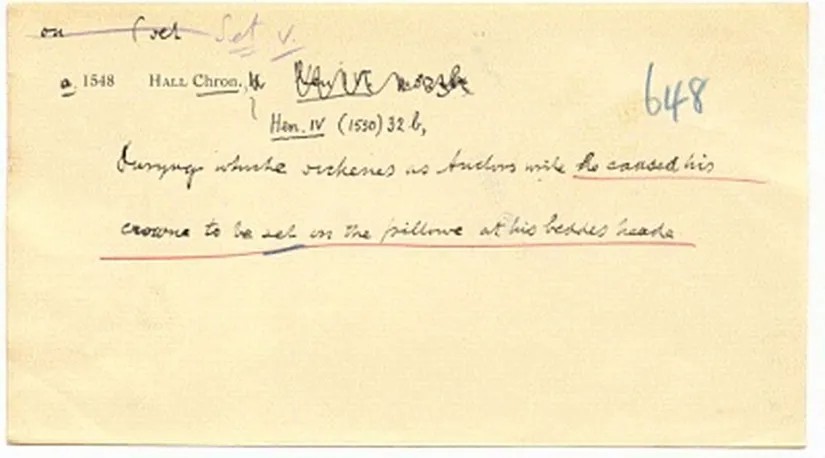 on (set Set v.
a 1548 HALL Chron.
648
Hen. IV (1550) 32 b,
Duryng whiche sickenes as Auctors write he caused his
crowne to be set on the pillowe at his beddes heade